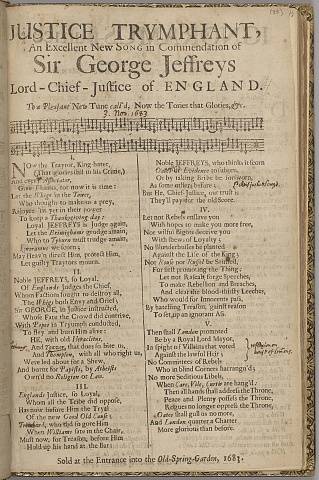 JUSTICE TRYMPHANT,
An Excellent New SONG in Commendation of
Sir George Jeffreys
Lord-Chief-Justice of ENGLAND.
To a Pleasant New Tune call'd, Now the Tories that Glories, &c.
3. Nov. 1683
NOw the Traytor, King-hater,
(That glories still in his Crime,)
And every Associator,
Grow Traytor, for now it is time:
Let the Whiggs in the Tower,
Who thought to make us a prey,
Rejoyce 'tis yet in their power
To keep a Thanksgiving day:
Loyal JEFFREYS is Judge again,
Let the Brimighams grudge amain,
Who to Tyburn must trudge amain,
May Heav'n direct Him, protect Him,
Let guilty Traytors mourn.
II.
Noble JEFFREYS, so Loyal,
Of Englands Judges the Chief,
Whom Factions sought to destroy all,
The Whigs both Envy and Grief;
Sir GEORGE, in Justice instructed,
Whose Fate the Crowd did contrive,
With Popes in Tryumph conducted,
To fry and burn Him alive:
HE, with old
And Tories, that does so here us,
And Thompson, with all who right us,
Were led about for a Shew,
And burnt for Papists, by Atheists
Own'd no Religion or Law.
III.
Englands Justice, so Loyal,
Whom all the Tribe did oppose,
Has now before Him the Tryal
Of the new Good Old Cause;
Trenchard, who did so gore Him
When Williams sate in the Chair,
Must now, for Treason, before Him
Hold up his hand at the Bar:
Noble JEFFREYS, who thinks it scorn
Or by taking Bribe be forsworn,
As some others before;
But He, Chief-Justice, our trust is
They'll pay for the old Score.
IV.
Let not Rebels enslave you
With hopes to make you more free,
Nor within Bigots deceive you
With shews of Loyalty;
No Blunderbuss be planted
Against the Life of the King;
Not Rouse nor Russel be Sainted,
For still promoting the Thing:
Let not Rascals forge Speeches,
To make Rebellion and Breaches,
And cleanse blood-thirsty Leeches,
Who would for Innocents pass,
By hatching Treason, 'gainst reason
To set up an ignorant Ass.
V.
Then shall London promoted
Be by a Royal Lord Mayor,
In spight of Villains that voted
Against the lawful Heir;
No Committees of Rebels
Who in blind Corners harrangu'd;
No more seditious Libels,
When Care, Vile, Curtis are hang'd:
Then all hands shall address the Throne,
Peace and Plenty possess the Throne,
Rogues no longer oppress the Throne,
Oates shall gull us no more,
And London quarter a Charter
More glorious than before.
Sold at the Entrance into the Old-Spring-Garden, 1683.